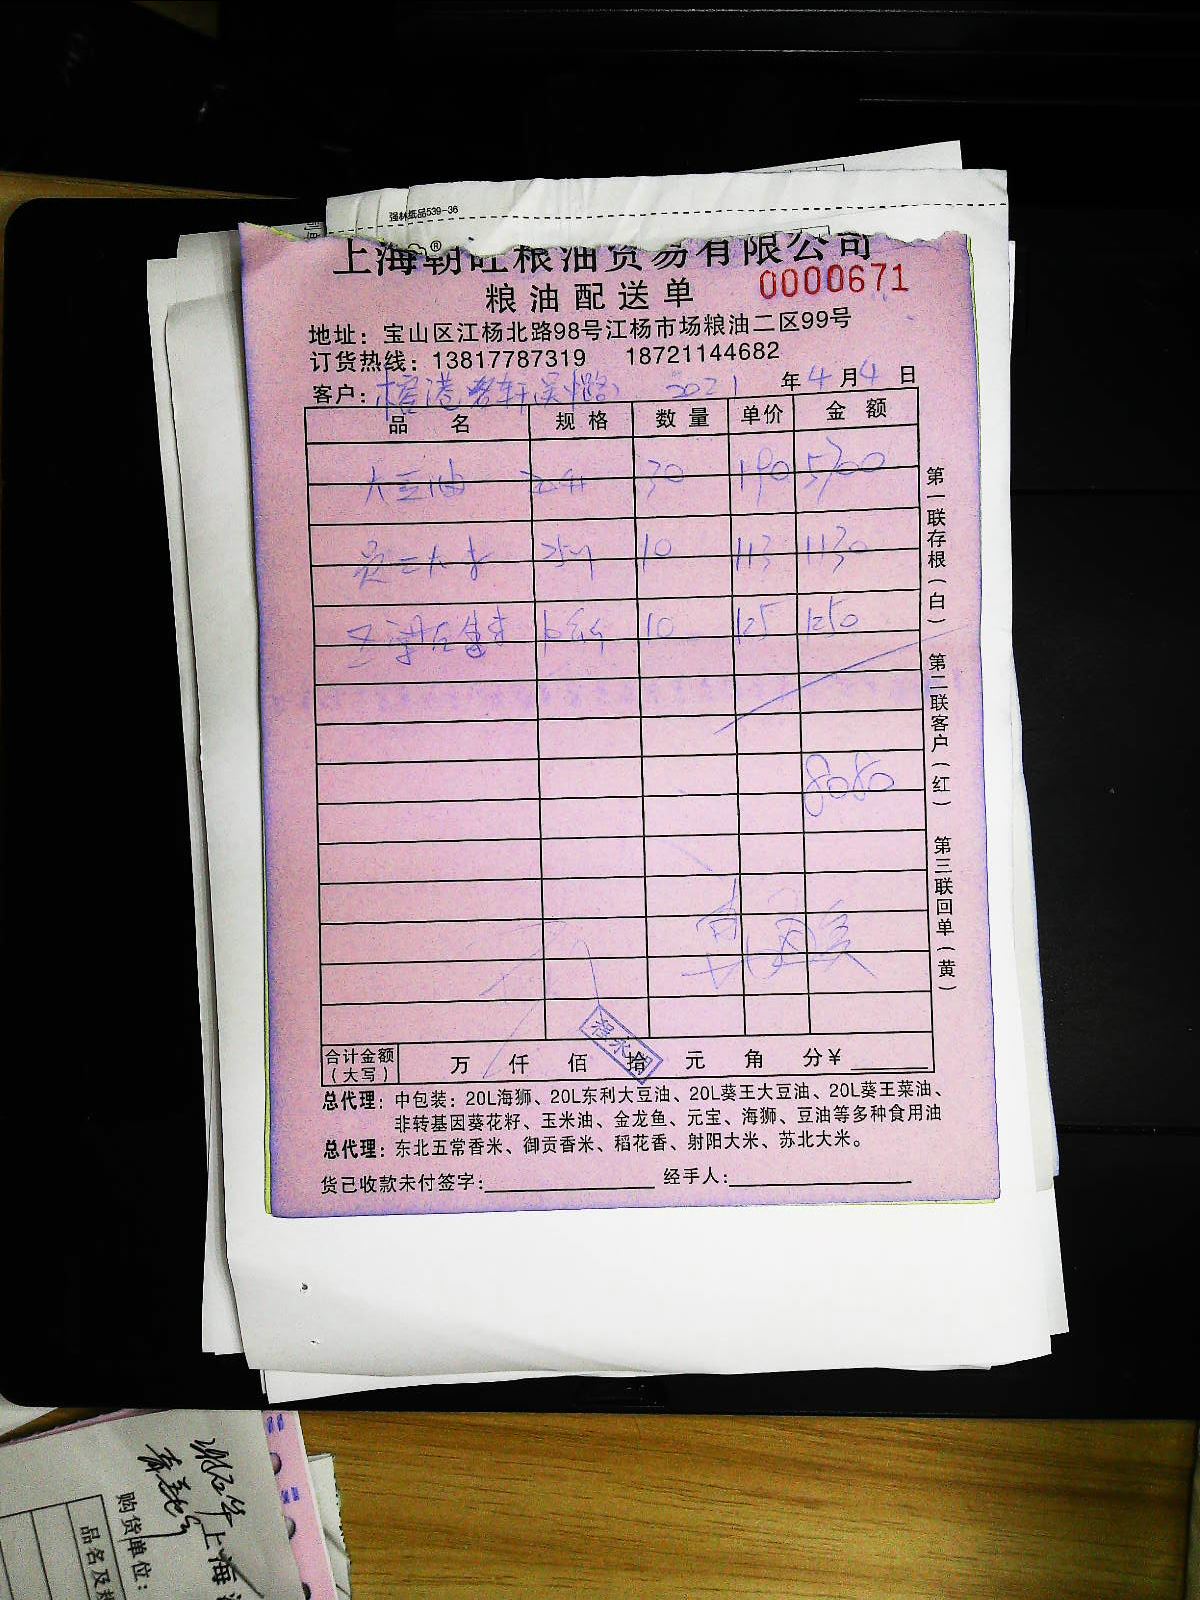 强林纸品539-36
上海朝旺粮油贸易有限公司
粮油配送单 0000671
地址：宝山区江杨北路98号江杨市场粮油二区99号
订货热线：13817787319 18721144682
客户： 2021 年 4 月 4 日
品 名 规 格 数 量 单价 金 额
大豆油 30 190 5700
10 113 1130
10 125 1250
8080
合计金额（大写） 万 仟 佰 拾 元 角 分¥
总代理：中包装：20L海狮、20L东利大豆油、20L葵王大豆油、20L葵王菜油、
非转基因葵花籽、玉米油、金龙鱼、元宝、海狮、豆油等多种食用油
总代理：东北五常香米、御贡香米、稻花香、射阳大米、苏北大米。
货已收款未付签字： 经手人：
第一联存根（白）
第二联客户（红）
第三联回单（黄）
购货单位：
上海
品名及规